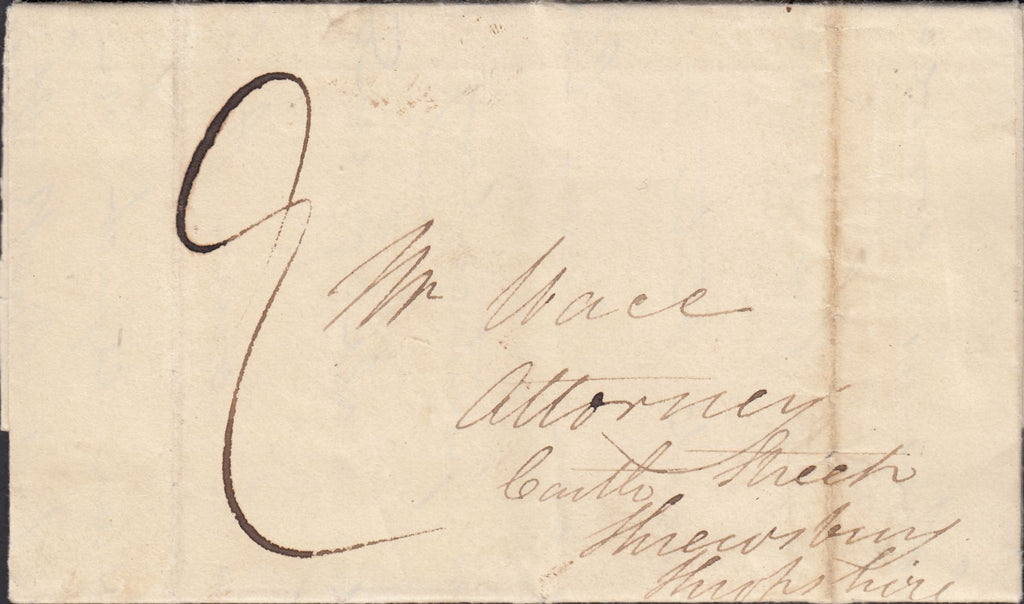 2
Mr Wace
Attorney
Castle Street
Shrewsbury
Shropshire